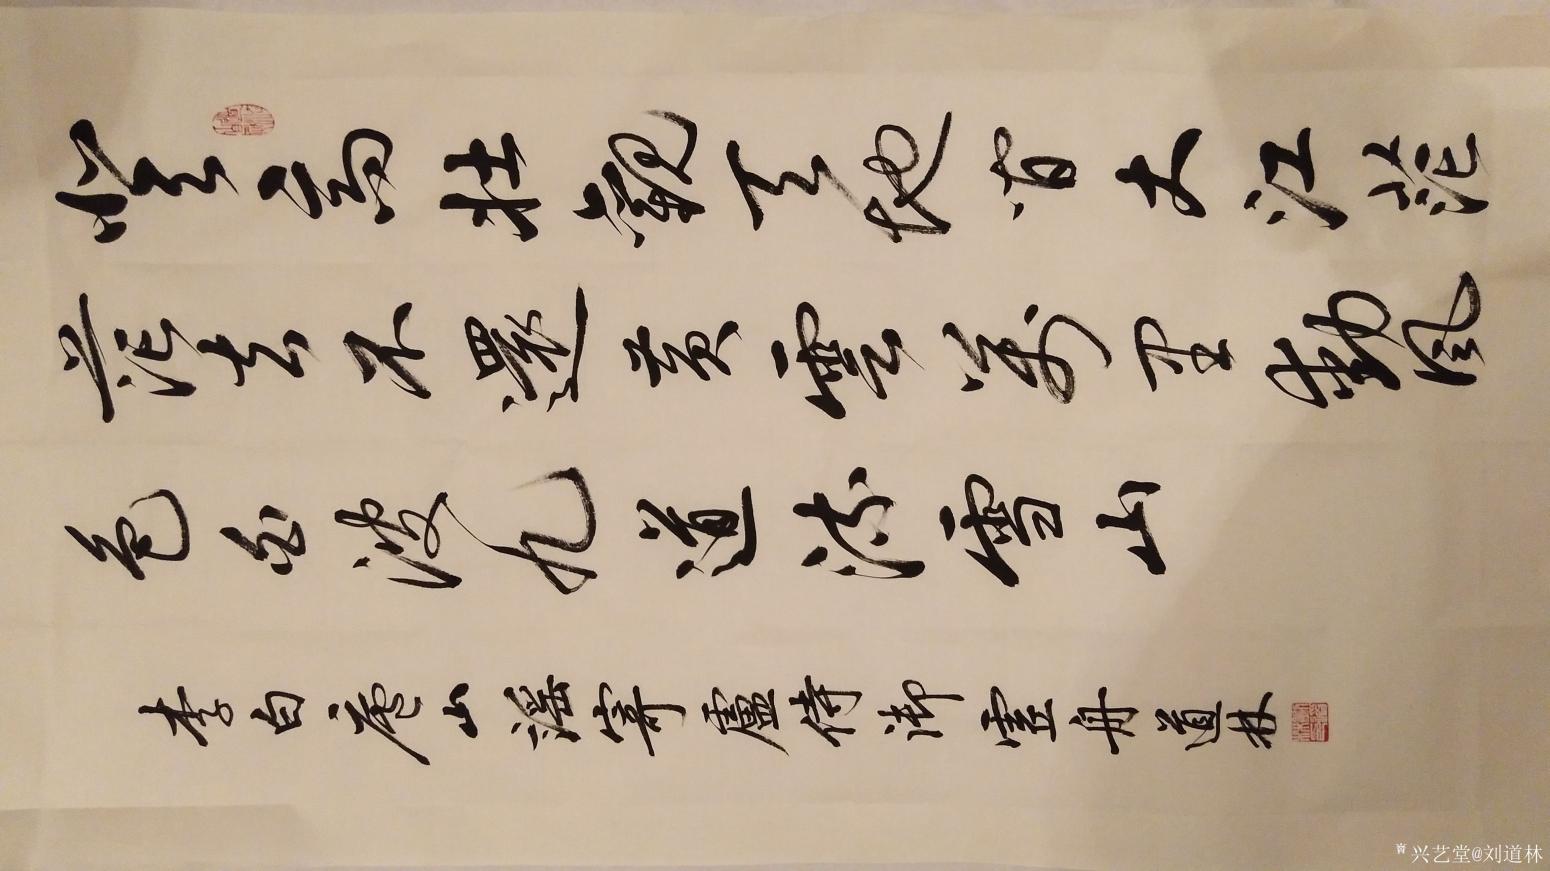 登高壮觀天地間大江茫
茫去不還黄雲萬里動風
色白波九道流雪山
李白廬山謡寄盧侍御虚舟道林
兴艺堂@刘道林